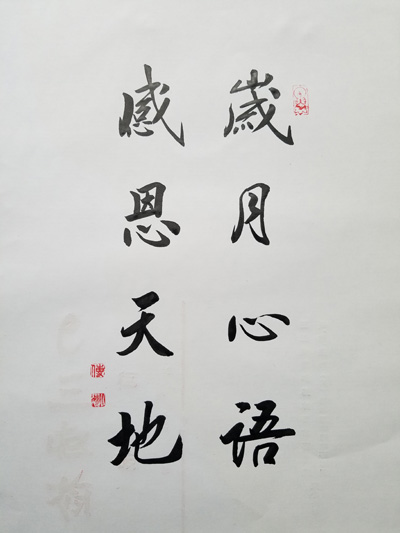 歲月心语
感恩天地